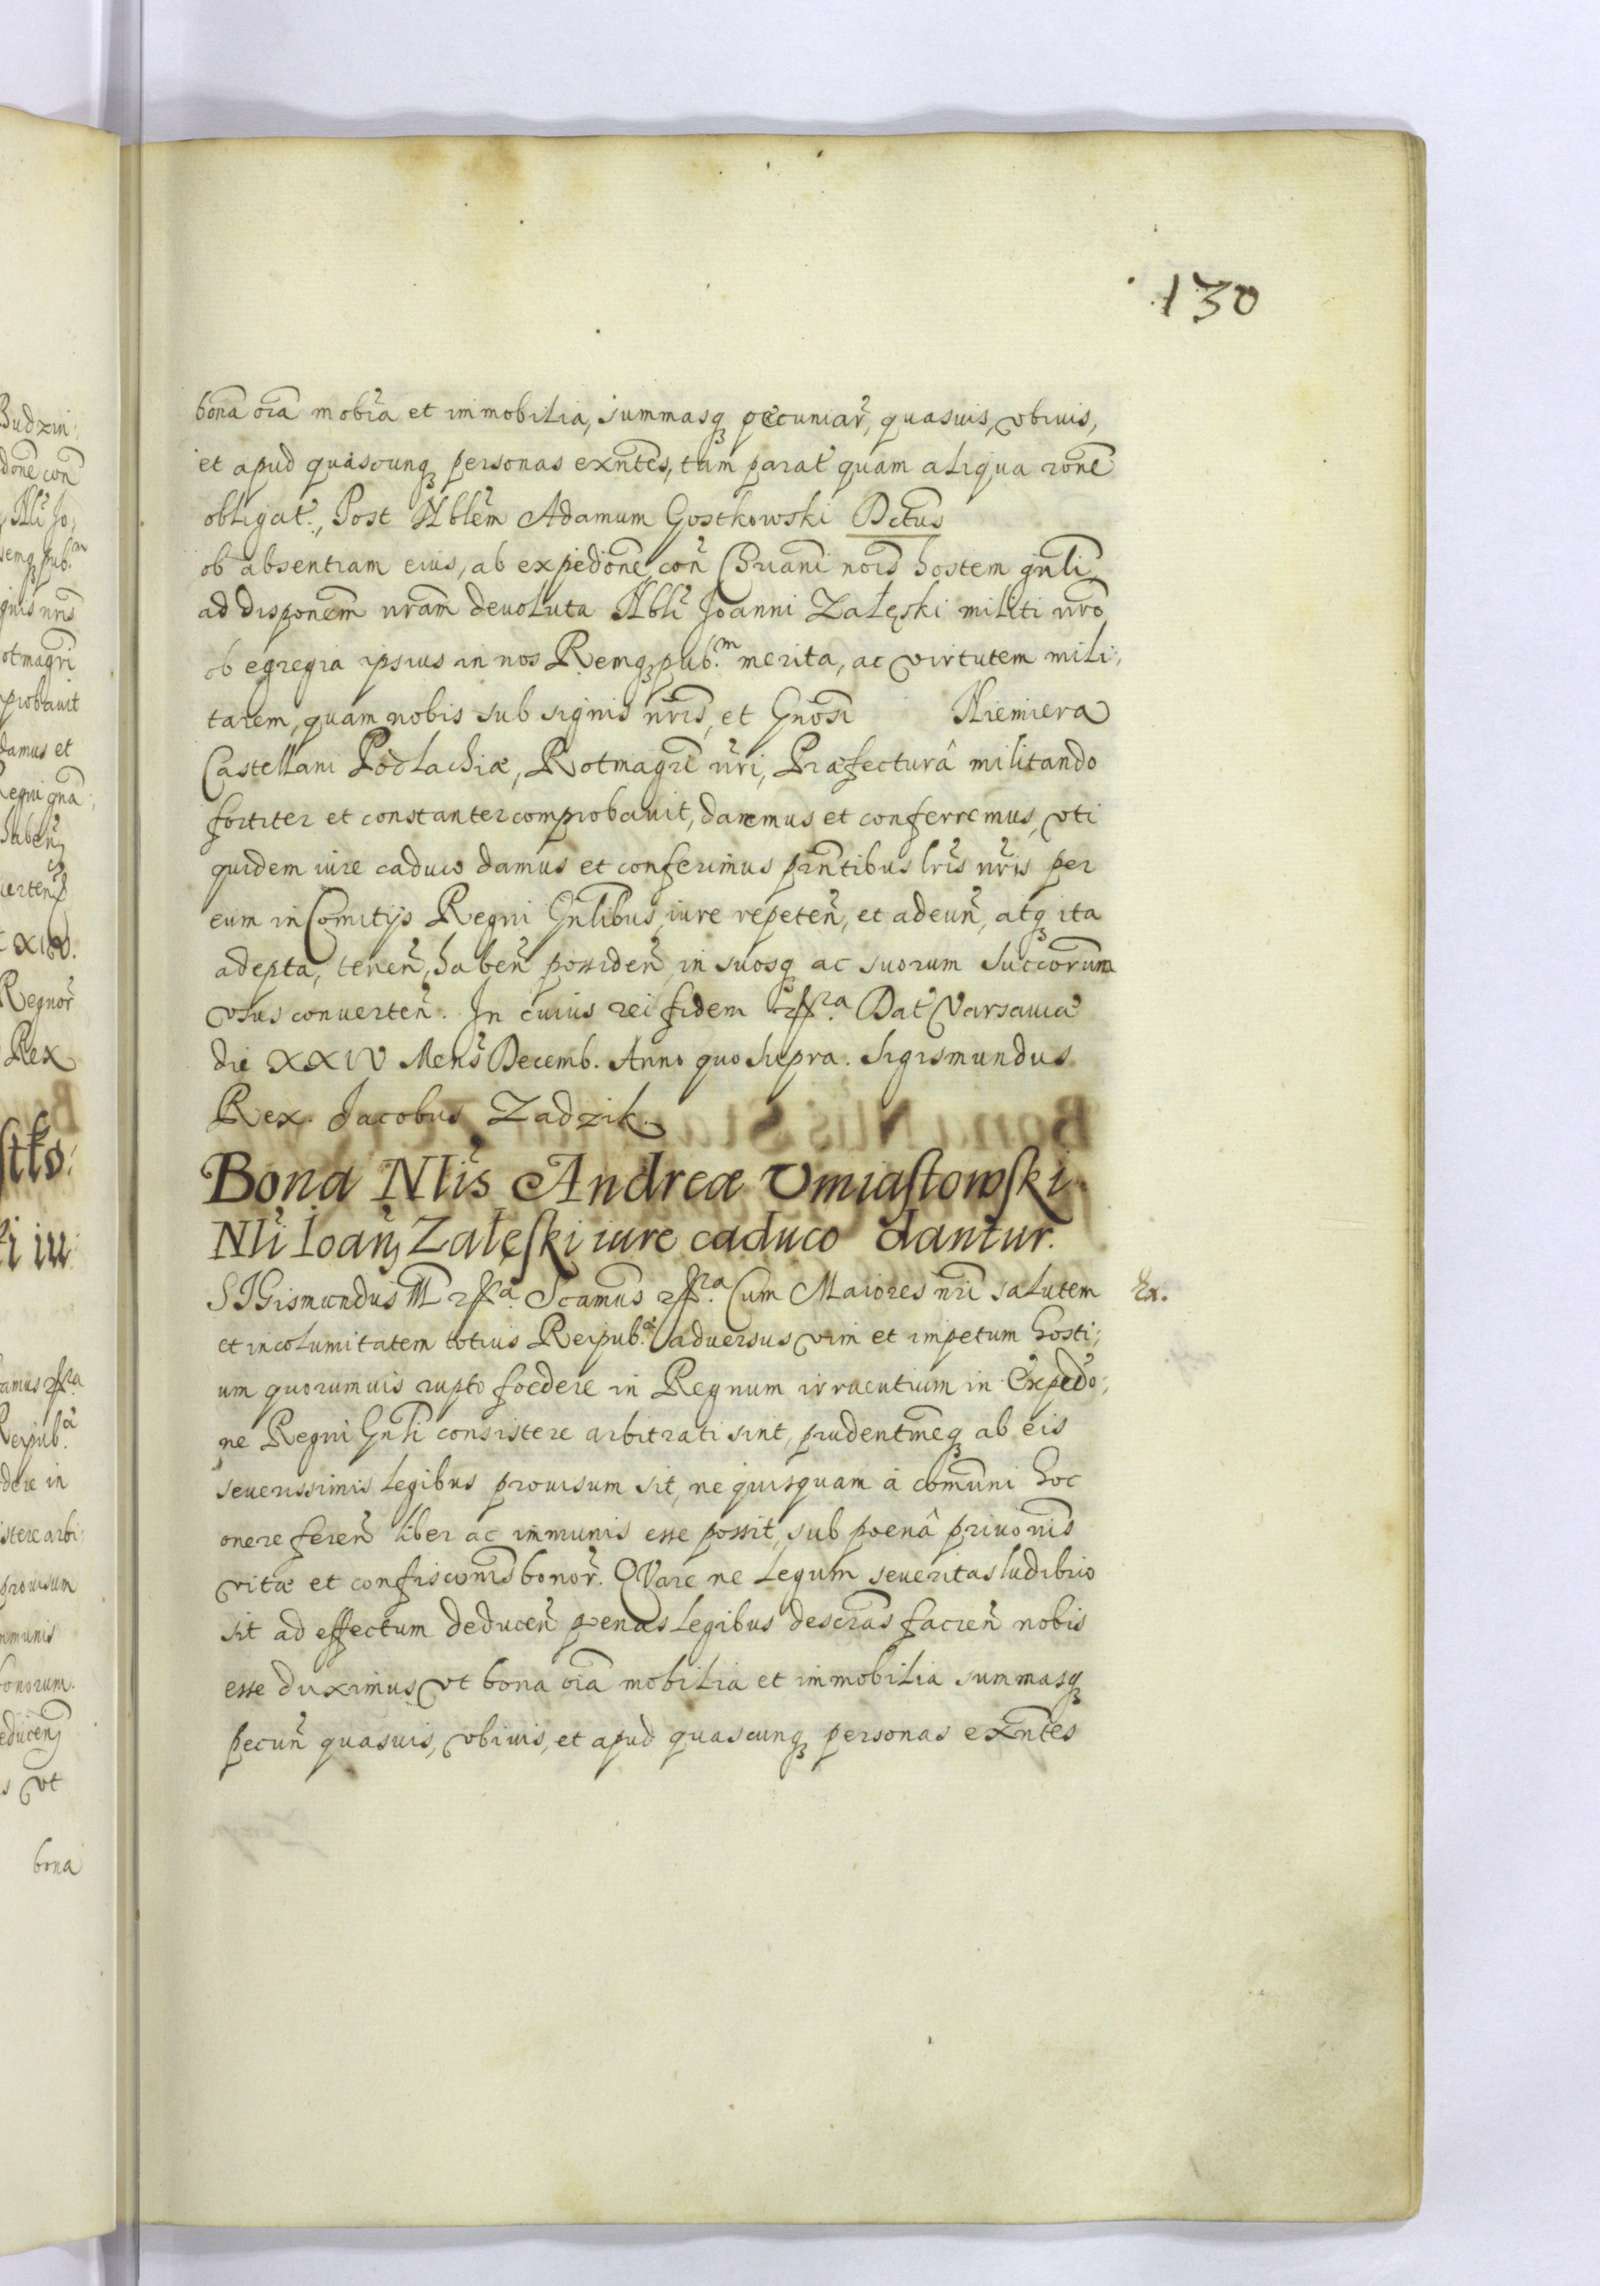 130
bona oîa mobîa et immobilia, summasq; pecuniar̃, quasuis, vbiuis,
et apud quascunq; personas exñtes, tam parat̃ quam aliqua rõne
obligat̃., Post Nblẽm Adamum Gostkowski Dctus
ob absentiam eius, ab expedõne, con̄ Chr̃iani nõis hostem gñli
ad disponẽm nrãm deuoluta Nbli Joanni Załęski militi nrõ
ob egregia ipsius in nos Remq; pub.m merita, ac virtutem mili:
tarem, quam nobis sub signis nrĩs, et Gnõsi Niemiera
Castellani Podlachiæ, Rotmagrĩ nrĩ, Præfecturâ militando
fortiter et constanter comprobauit, daremus et conferremus, vti
quidem iure caduco damus et conferimus prñtibus lrĩs nrĩs per
eum in Comitijs Regni Gñlibus, iure repeteñ, et adeuñ, atq; ita
adepta, teneñ, habeñ possideñ, in suosq; ac suorum Succorum
vsus conuerteñ. In cuius rei fidem rssa. Dat̃ Varsauiæ
die XXIV Mens̃ Decemb. Anno quo supra. Sigismundus
Rex. Jacobus Zadzik.
Bona Nlĩs Andreæ Vmiastowski
Nlĩ Ioañ Załęski iure caduco dantur.
SIGismundus III rssa. Scamus rssa. Cum Maiores nrĩ salutem
Ex.
et incolumitatem totius Reipub.æ aduersus vim et impetum hosti:
um quorumuis rupto foedere in Regnum irruentium in Expedo:
ne Regni Gñli consistere arbitrati sint, prudentmẽq; ab eis
seuerissimis legibus prouisum sit, ne quisquam à comũni hoc
onere fereñ liber ac immunis esse possit, sub poenâ priuonĩs
vitæ et confisconĩs bonor̃. QVare ne legum seueritas ludibrio
sit ad effectum deduceñ penas legibus descr̃as facieñ nobis
esse duximus, vt bona oîa mobilia et immobilia summasq;
pecuñ quasuis, vbiuis, et apud quascunq; personas exñtes